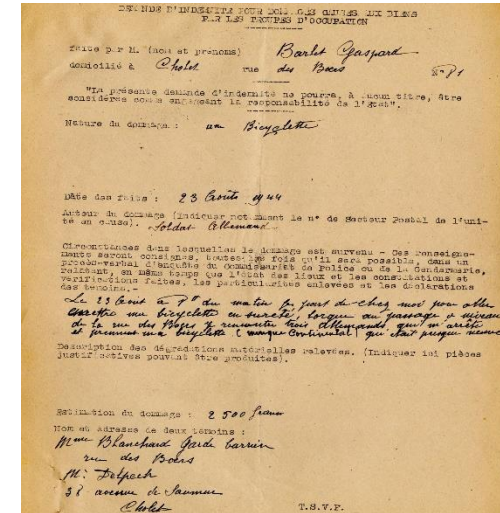 DEMANDE D'INDEMNITE POUR DOMMAGES CAUSES AUX BIENS
PAR LES TROUPES D'OCCUPATION
faite par M. (nom et prénoms) Barlet Gaspard
domicilié à Cholet rue des Boers N° 81
"La présente demande d'indemnité ne pourra, à aucun titre, être
considérée comme engageant la responsabilité de l'Etat".
Nature du dommage : une Bicyclette
Date des faits : 23 Août 1944
Auteur du dommage (Indiquer notamment le n° de Secteur Postal de l'uni-
té en cause). Soldat Allemand
Circonstances dans lesquelles le dommage est survenu - Ces renseigne-
ments seront consignés, toutes les fois qu'il sera possible, dans un
procès-verbal d'enquête du Commissariat de Police ou de la Gendarmerie,
relatant, en même temps que l'état des lieux et les constatations et
vérifications faites, les particularités enlevées et les déclarations
des témoins.
Le 23 Août à 7h du matin je part de chez moi pour aller
mettre ma bicyclette en sureté, lorsque au passage à niveau
de la rue des Boers je rencontre trois allemands, qui m'arrête
et prennent ma bicyclette (marque Continental) qui était presque neuve
Description des dégradations matérielles relevées. (Indiquer ici pièces
justificatives pouvant être produites).
Estimation du dommage : 2 500 francs
Nom et adresse de deux témoins :
Mme Blanchard Garde barrière
rue des Boers
Mr Delpech
38 avenue de Saumur
Cholet T.S.V.P.